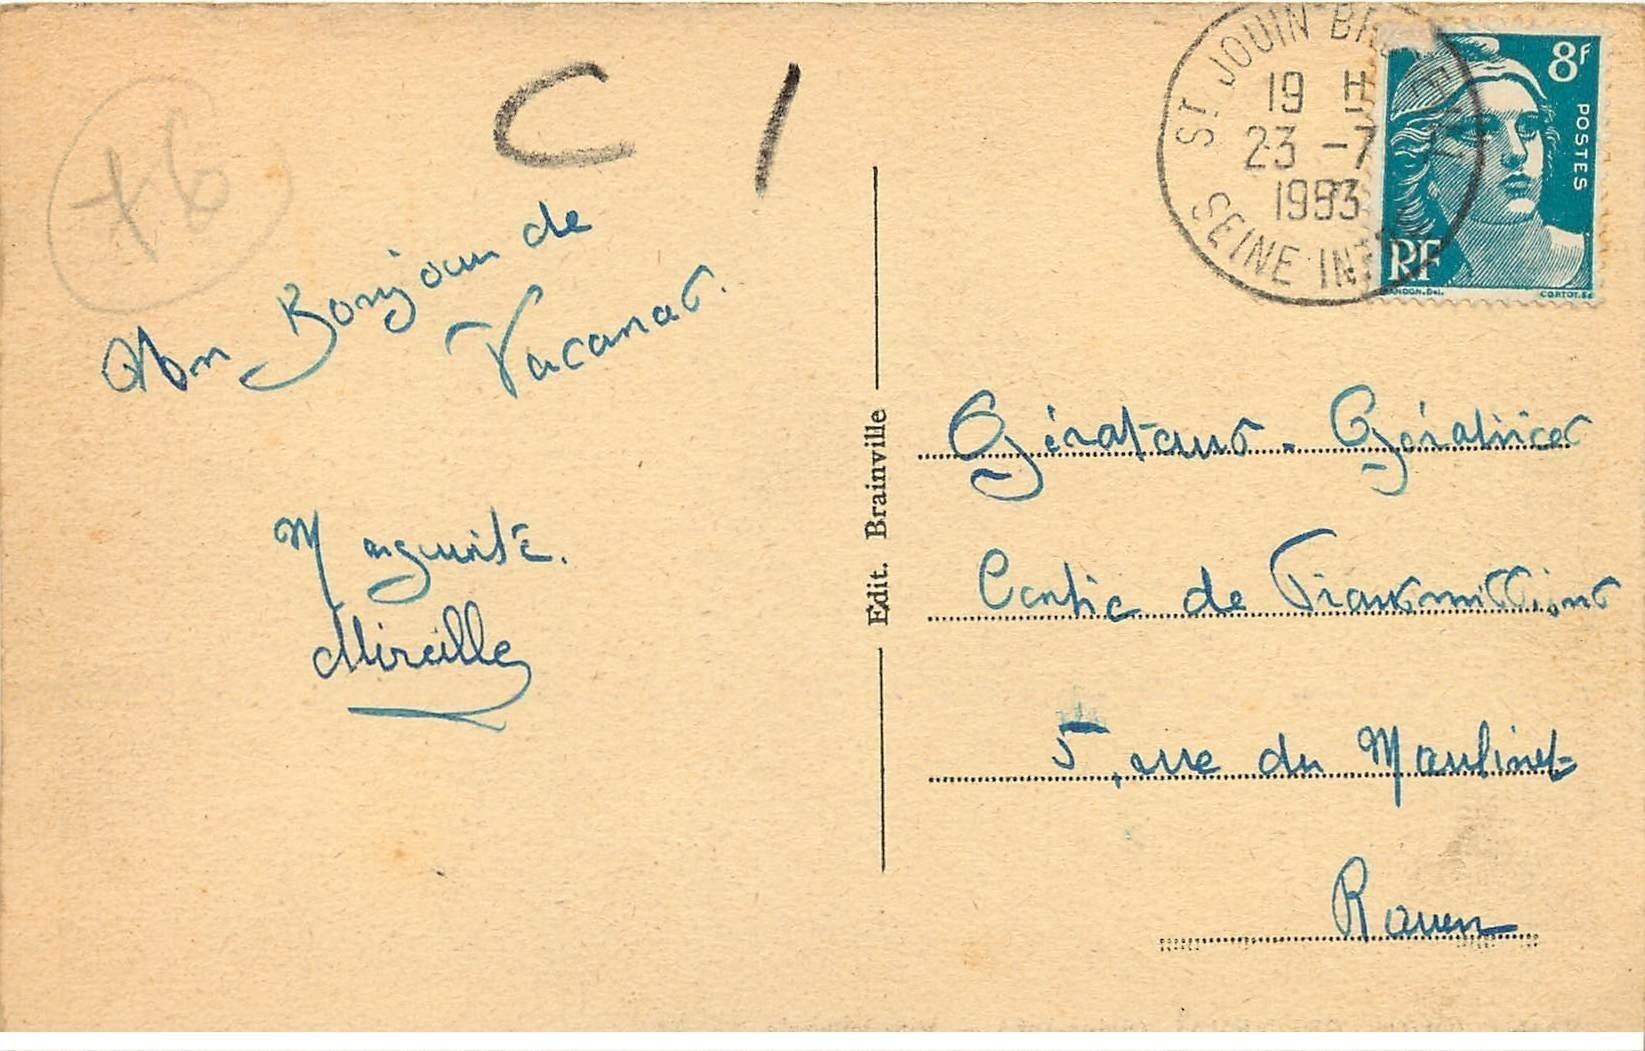 +6
C /
Un Bonjour de
Vacances.
Marguerite.
Mireille
Edit. Brainville
ST JOUIN-BR
19 H
23 -7
1953
SEINE INF
8F
POSTES
RF
GANDON.Del.
CORTOT.Sc
Opérateurs - Opératrices
Centre de Transmissions
5, rue du Moulinet
Rouen